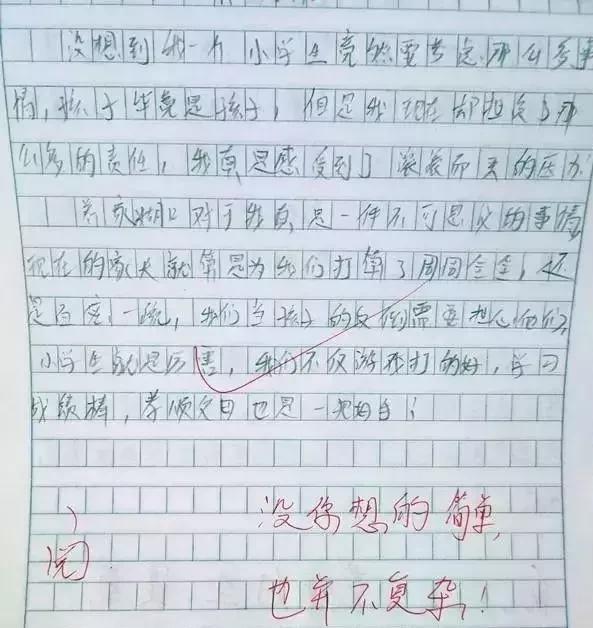 没想到我一个小学生竟然要考虑那么多事
情，孩子毕竟是孩子，但是我现在却担负了那
么多的责任，我真是感受到了滚滚而来的压力
养家糊口对于我真是一件不可思议的事情
现在的家长就算是为我们打算了周周全全，还
是百密一疏，我们当孩子的反倒需要担心他们，
小学生就是厉害，我们不仅游戏打的好，学习
成绩棒，孝顺父母也是一把好手！
没你想的简单，
也并不复杂！
阅